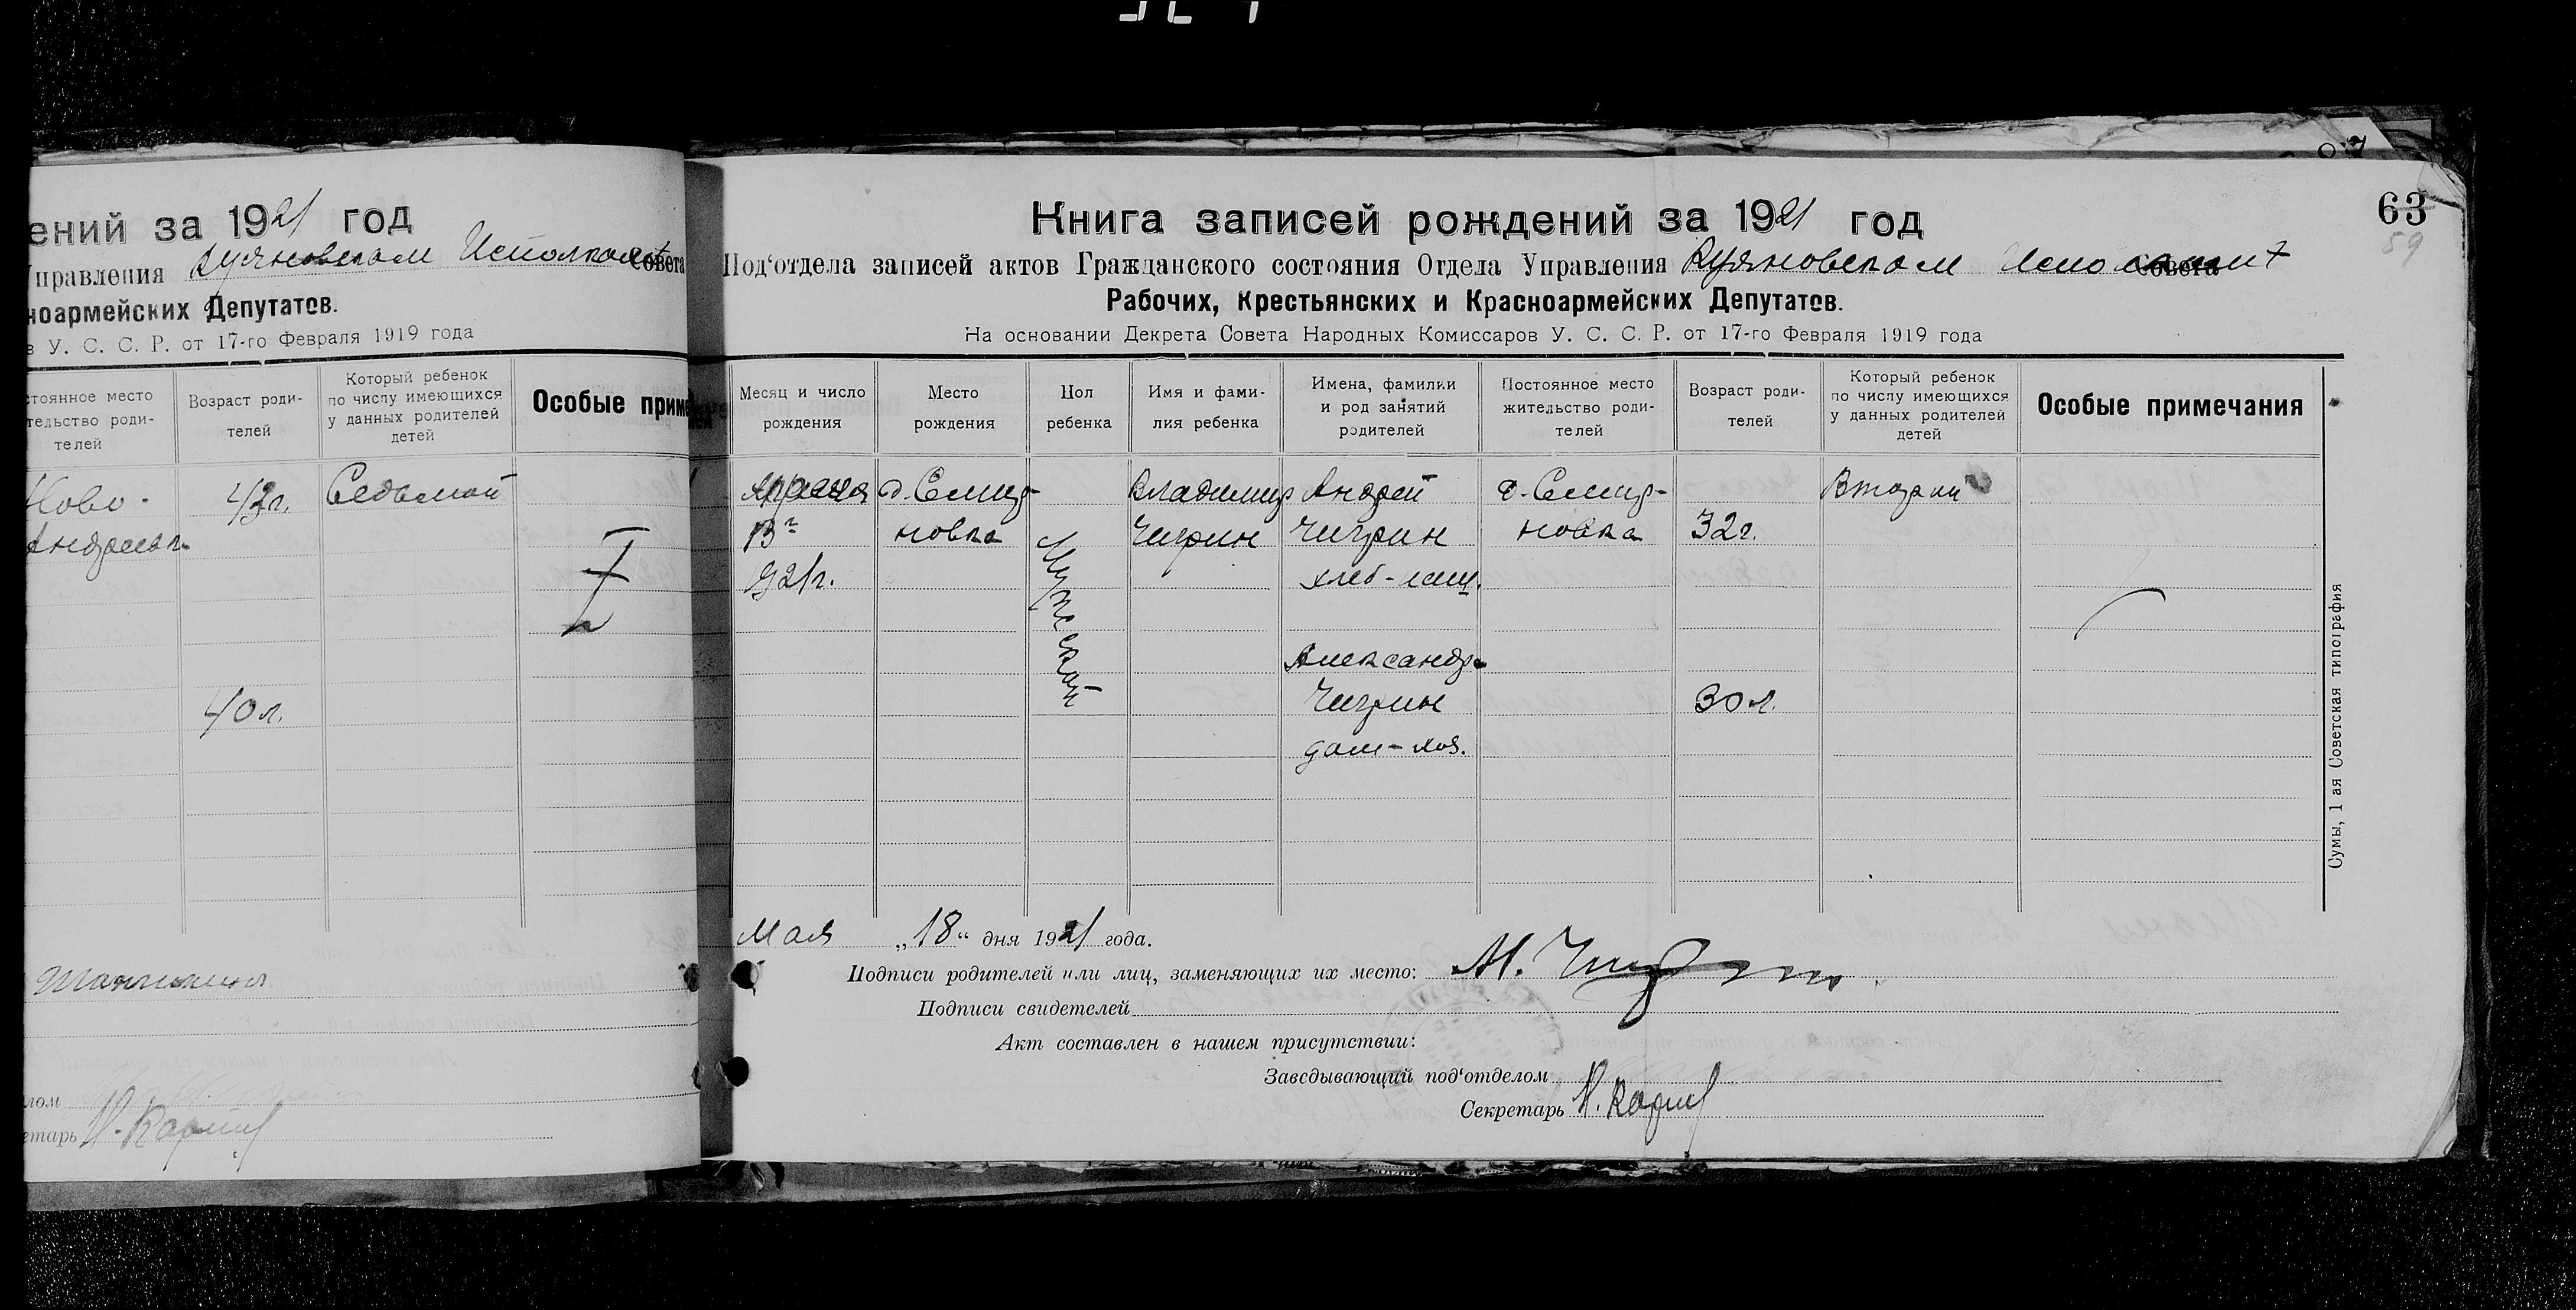 ений за 1921 год
Управления
Совета
ноармейских Депутатов.
в У. С. С. Р. от 17-го Февраля 1919 года
стоянное место
тельство роди-
телей
Возраст роди-
телей
Который ребенок
по числу имеющихся
у данных родителей
детей
Особые приме
Ново-
42г.
Седьмой
40л.
лом
етарь
63
59
Книга записей рождений за 1921 год
Под'отдела записей актов Гражданского состояния Отдела Управления Совета
Рабочих, Крестьянских и Красноармейских Депутатов.
На основании Декрета Совета Народных Комиссаров У. С. С. Р. от 17-го Февраля 1919 года
Месяц и число
рождения
Место
рождения
Пол
ребенка
Имя и фами-
лия ребенка
Имена, фамилии
и род занятий
родителей
Постоянное место
жительство роди-
телей
Возраст роди-
телей
Который ребенок
по числу имеющихся
у данных родителей
детей
Особые примечания
Апреля
13го
1921г.
новка
Мужской
Владимир
Чигрин
Андрей
Чигрин
хлеб-паш.
Александра
Чигрин
дом-хоз.
новка
32г.
30л.
Второй
Мая „18“ дня 1921 года.
Подписи родителей или лиц, заменяющих их место:
Подписи свидетелей
Акт составлен в нашем присутствии:
Заведывающий под'отделом
Секретарь
Сумы, 1 ая Советская типография